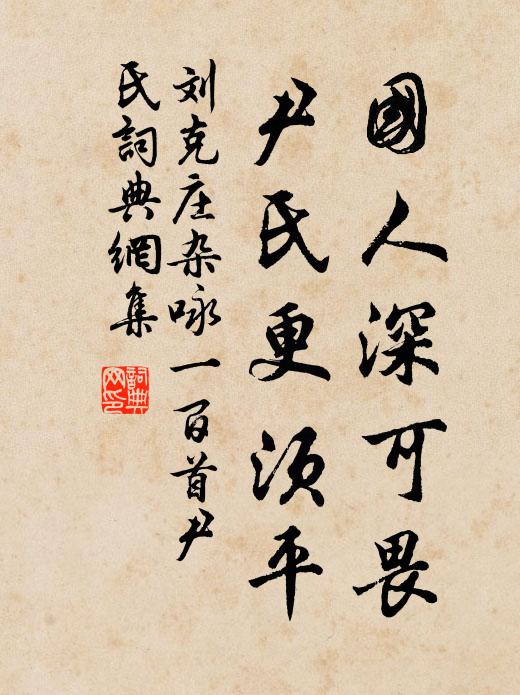 國人深可畏
尹氏更須平
刘克庄杂咏一百首尹
氏詞典網集
詞典网印